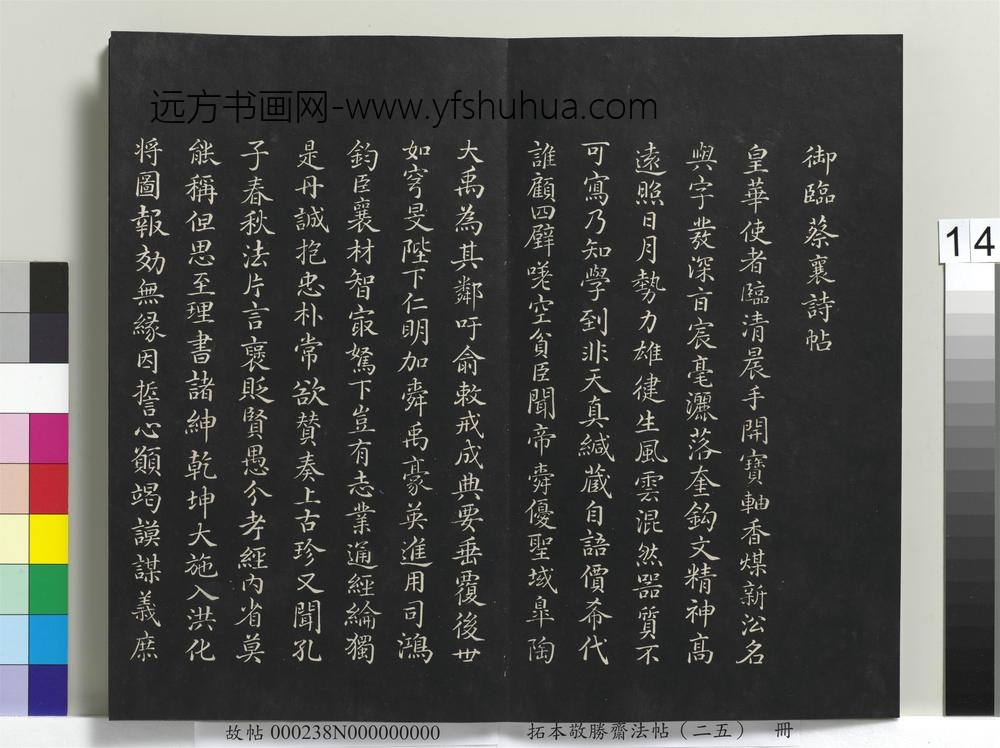 远方书画网-www.yfshuhua.com
御臨蔡襄詩帖
皇華使者臨清晨手開寶軸香煤新沿名
與字發深旨宸毫灑落奎鈎文精神高
遠照日月勢力雄徤生風雲混然器質不
可寫乃知學到非天真緘藏自語價希代
誰顧四壁嗟空貧臣聞帝舜優聖域臯陶
大禹為其鄰吁俞敕戒成典要垂覆後世
如穹旻陛下仁明加舜禹豪英進用司鴻
鈞臣襄材智㝡駑下豈有志業通經綸獨
是丹誠抱忠朴常欲賛奏上古珍又聞孔
子春秋法片言褒貶賢愚分考經內省莫
能稱但思至理書諸紳乾坤大施入洪化
将圖報効無緣因誓心願竭謨謀義庶
14
故帖 000238N000000000
拓本敬勝齋法帖（二五） 冊